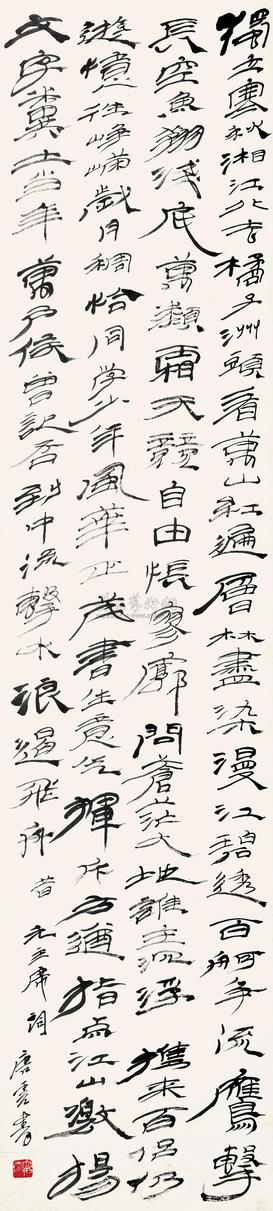 獨立寒秋湘江北去橘子洲頭看萬山紅遍層林盡染漫江碧透百舸争流鷹擊
長空魚翔淺底萬類霜天競自由悵寥廓問蒼茫大地誰主沉浮攜来百侣仍
遊憶往崢嶸歲月稠恰同学少年風華正茂書生意气揮斥方遒指点江山激揚
文字糞土当年萬户侯曾記否到中流擊水浪遏飛舟
毛主席詞
唐雲書